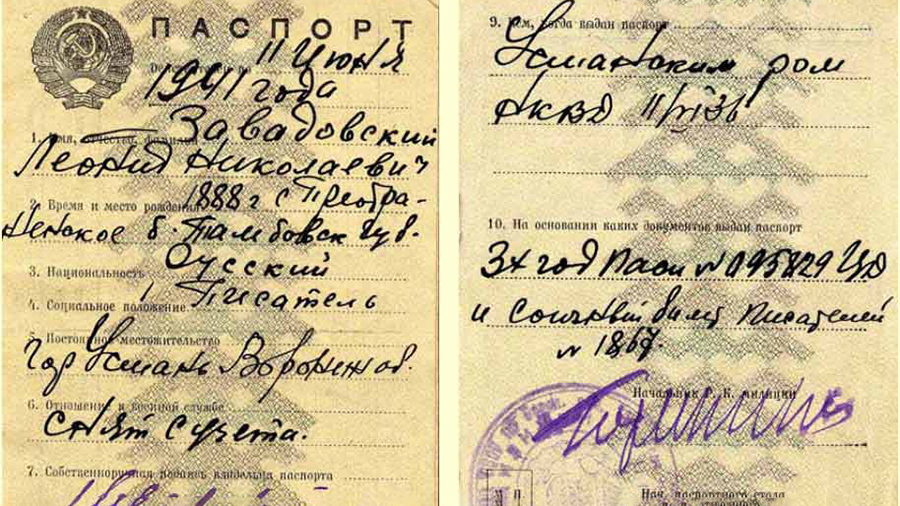 ПАСПОРТ
11 Июня
1941 года
1. Имя, отчество, фамилия Завадовский
Леонид Николаевич
2. Время и место рождения 1888 г с Преобра-
женское б. Тамбовск губ.
3. Национальность Русский
4. Социальное положение Писатель
5. Постоянное местожительство
гор Усмань Воронежоб.
6. Отношение к военной службе
снят с учета.
7. Собственноручная подпись владельца паспорта
9. Кем, когда выдан паспорт
Усманским ром
НКВД 11/VI 36
10. На основании каких документов выдан паспорт
3х год пасп №095829
и союзный билет писателей
№ 1867.
Начальник Р. К. милиции
М П
Нач. паспортного стола